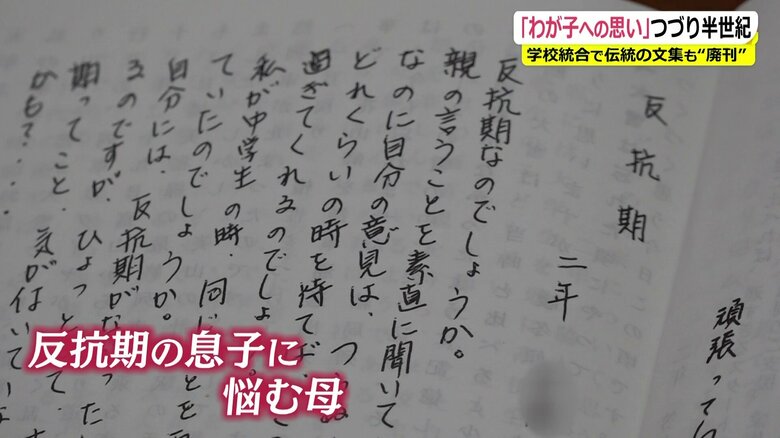 「わが子への思い」つづり半世紀
学校統合で伝統の文集も“廃刊”
頑張ってい
反抗期
二年
反抗期なのでしょうか。
親の言うことを素直に聞いて
なのに自分の意見は、つら
どれくらいの時を待てば、こ
過ぎてくれるのでしょ
私が中学生の時、同じことを
ていたのでしょうか。
自分には、反抗期がなかった
るのですが、ひょっとして、
期ってこと、気が付いていな
かも?...
反抗期の息子に
悩む母